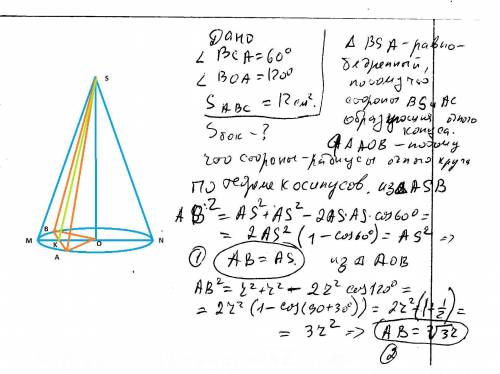 S
B
M
K
O
N
A
Дано
∠ BCA = 60°
∠ BOA = 120°
S ABC = 12 см².
Sбок - ?
Δ BSA - равно-
бедренный,
потому что
стороны BS и AC
образующие одного
конуса.
Δ AOB - потому
что стороны - радиусы одного круга
По теореме косинусов. из Δ ASB
AB² = AS² + AS² - 2AS·AS·cos60° =
= 2AS² (1 - cos60°) = AS² =>
① AB = AS. из Δ AOB
AB² = r² + r² - 2r² cos120° =
= 2r² (1 - cos(90+30°)) = 2r² (1 + 1/2) =
= 3r² => AB = √3r
②